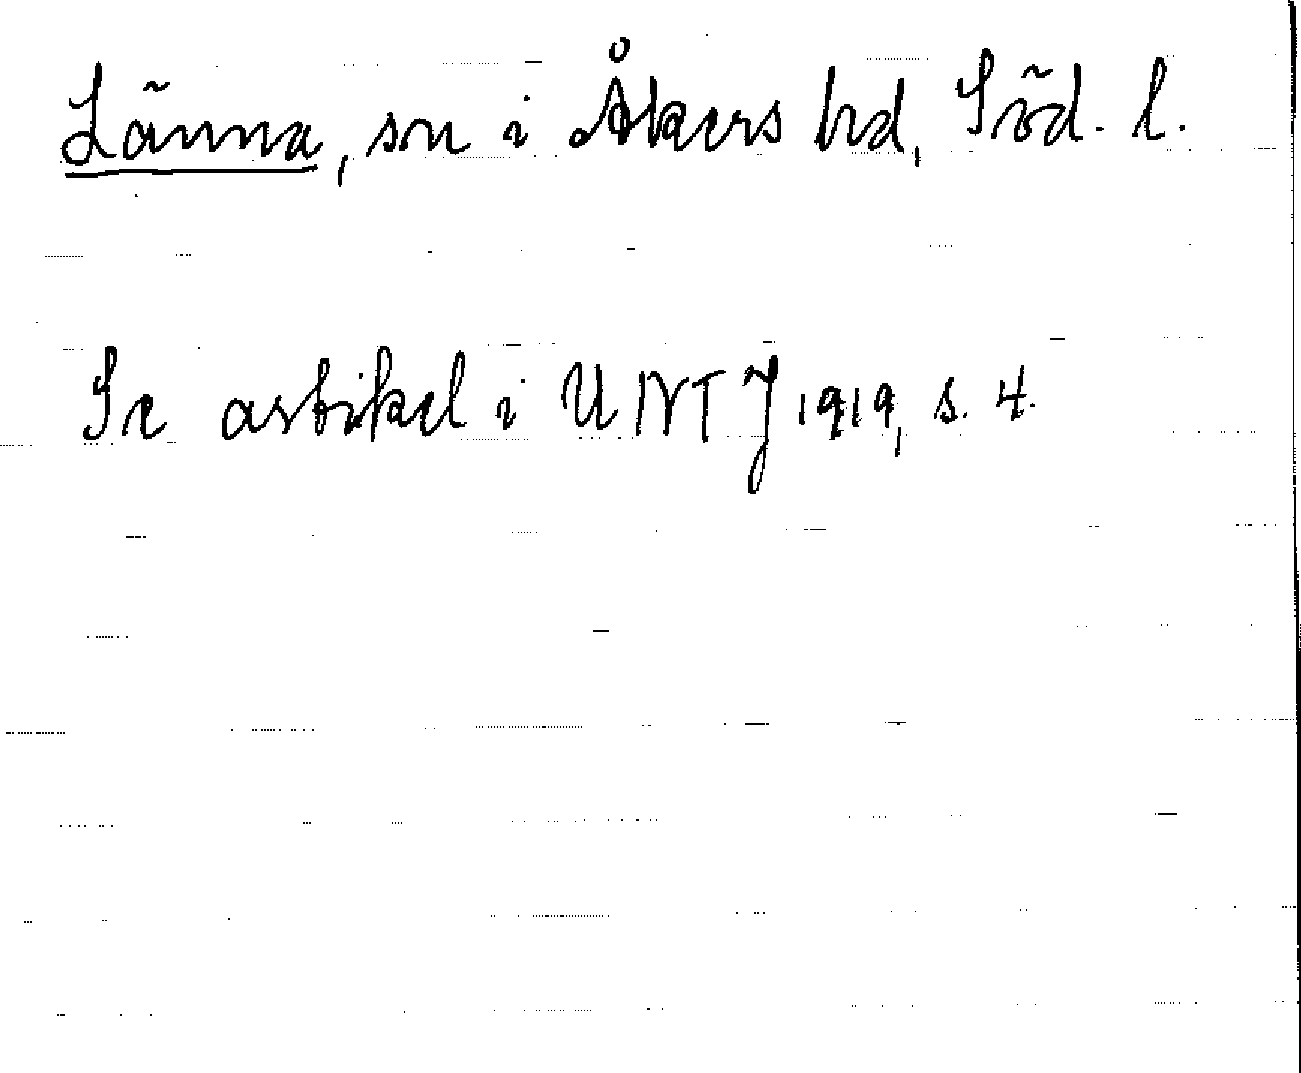 Länna, sn i Åkers hd, Söd. l.
Se artikel i UNTJ 1919, s. 4.